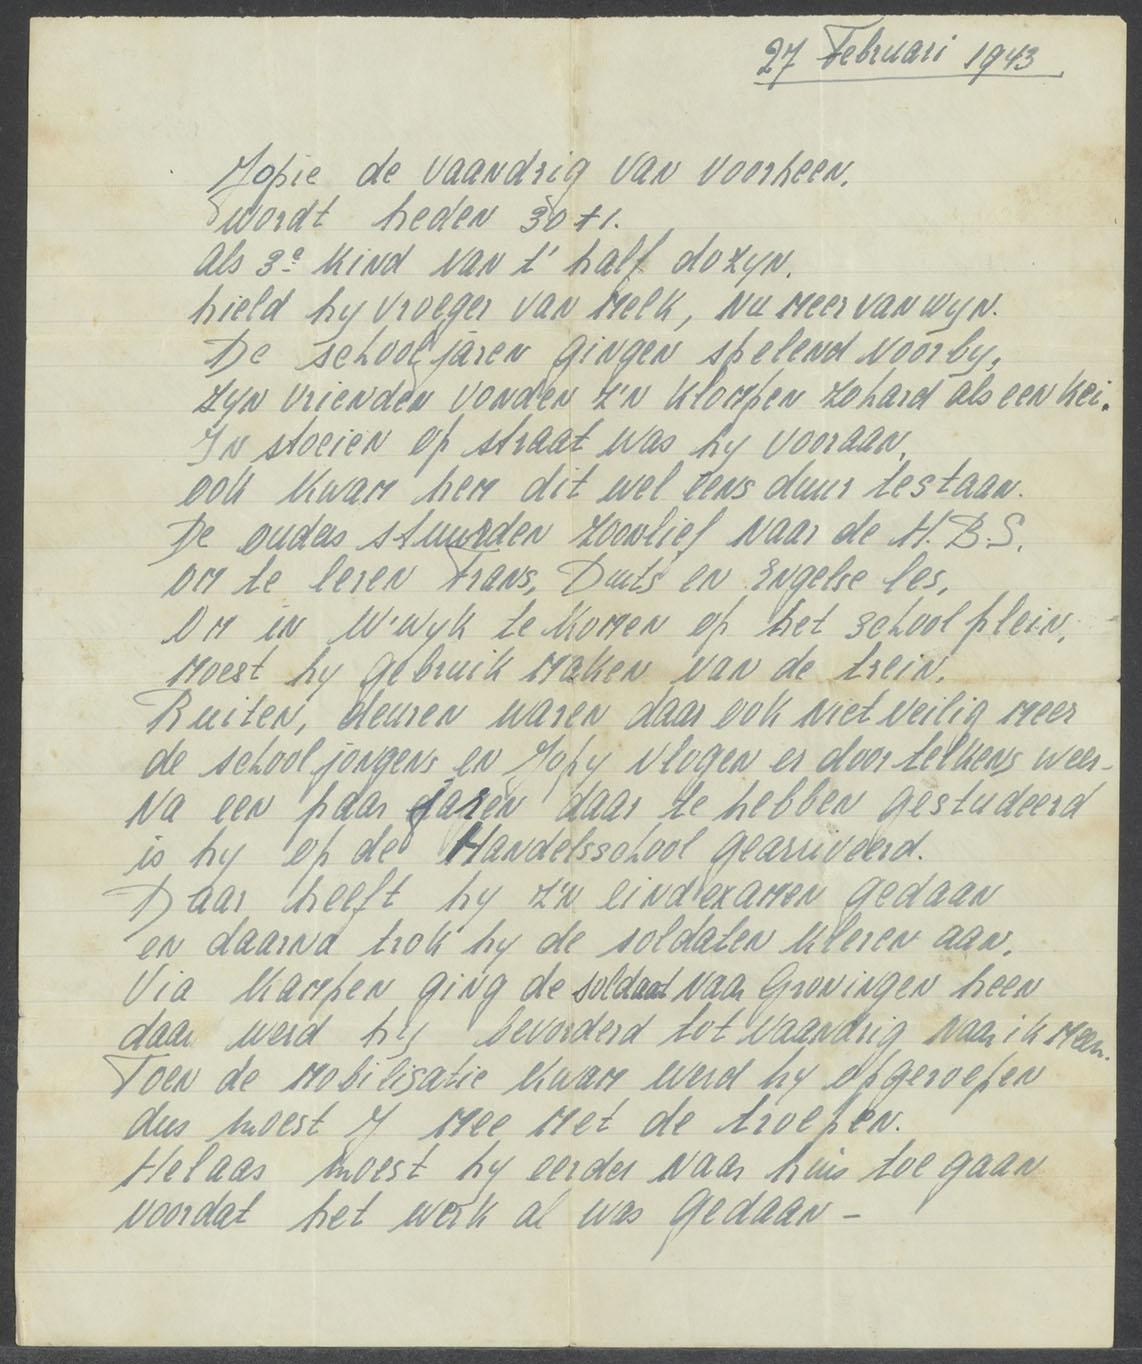 27 Februari 1943
Jopie de vaandrig van voorheen.
wordt heden 30 + 1.
Als 3e kind van t' half dozyn.
hield hy vroeger van melk, nu meer van wyn.
De schooljaren gingen spelend voorby,
zyn vrienden vonden z'n klompen zo hard als een kei.
In stoeien op straat was hy vooraan,
ook kwam hem dit wel eens duur te staan.
De ouders stuurden zoonlief naar de H.B.S.
om te leren Frans, Duits en Engelse les.
Om in W'wyk te komen op het schoolplein,
moest hy gebruik maken van de trein.
Ruiten, deuren waren daar ook niet veilig meer
de schooljongens en Jopy vlogen er door telkens weer-
Na een paar jaren daar te hebben gestudeerd
is hy op de Handelsschool gearriveerd.
Daar heeft hy z'n eindexamen gedaan
en daarna trok hy de soldaten kleren aan.
Via Kampen ging de soldaat naar Groningen heen
daar werd hy bevorderd tot vaandrig naar ik meen.
Toen de mobilisatie kwam werd hy opgeroepen
dus moest J mee met de troepen.
Helaas moest hy eerder naar huis toe gaan
voordat het werk al was gedaan -